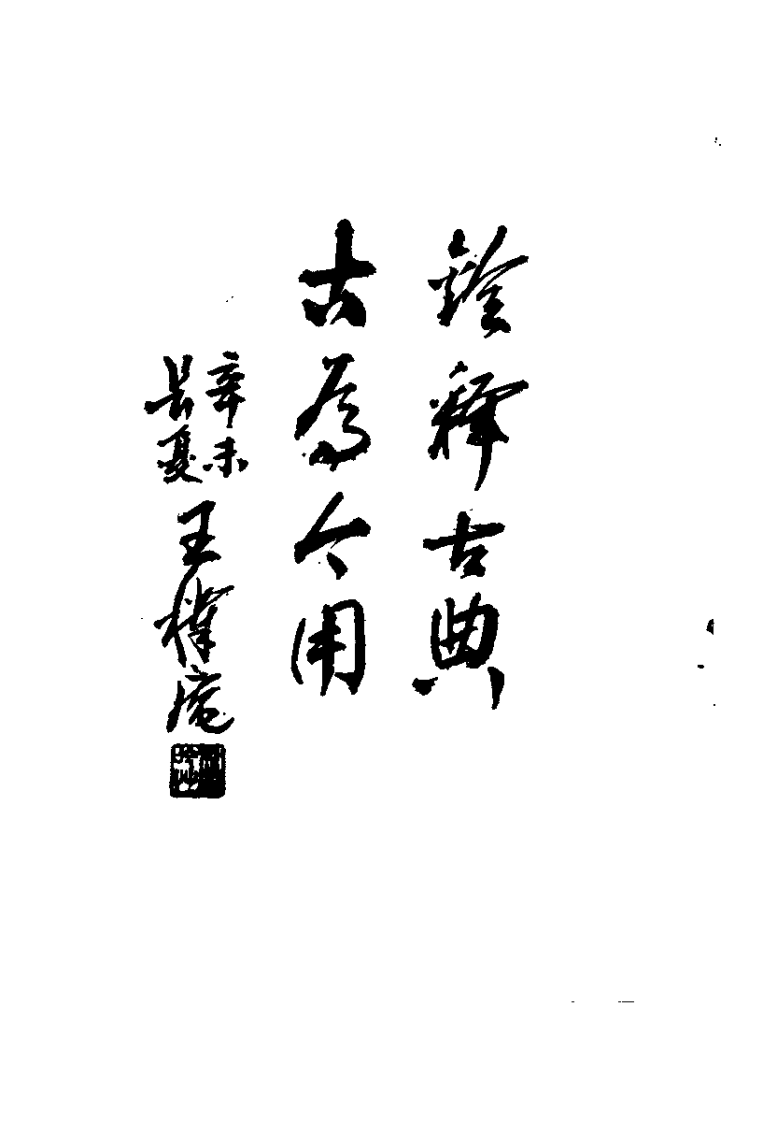 诠释古典
古為今用
辛未
長夏
王樸庵